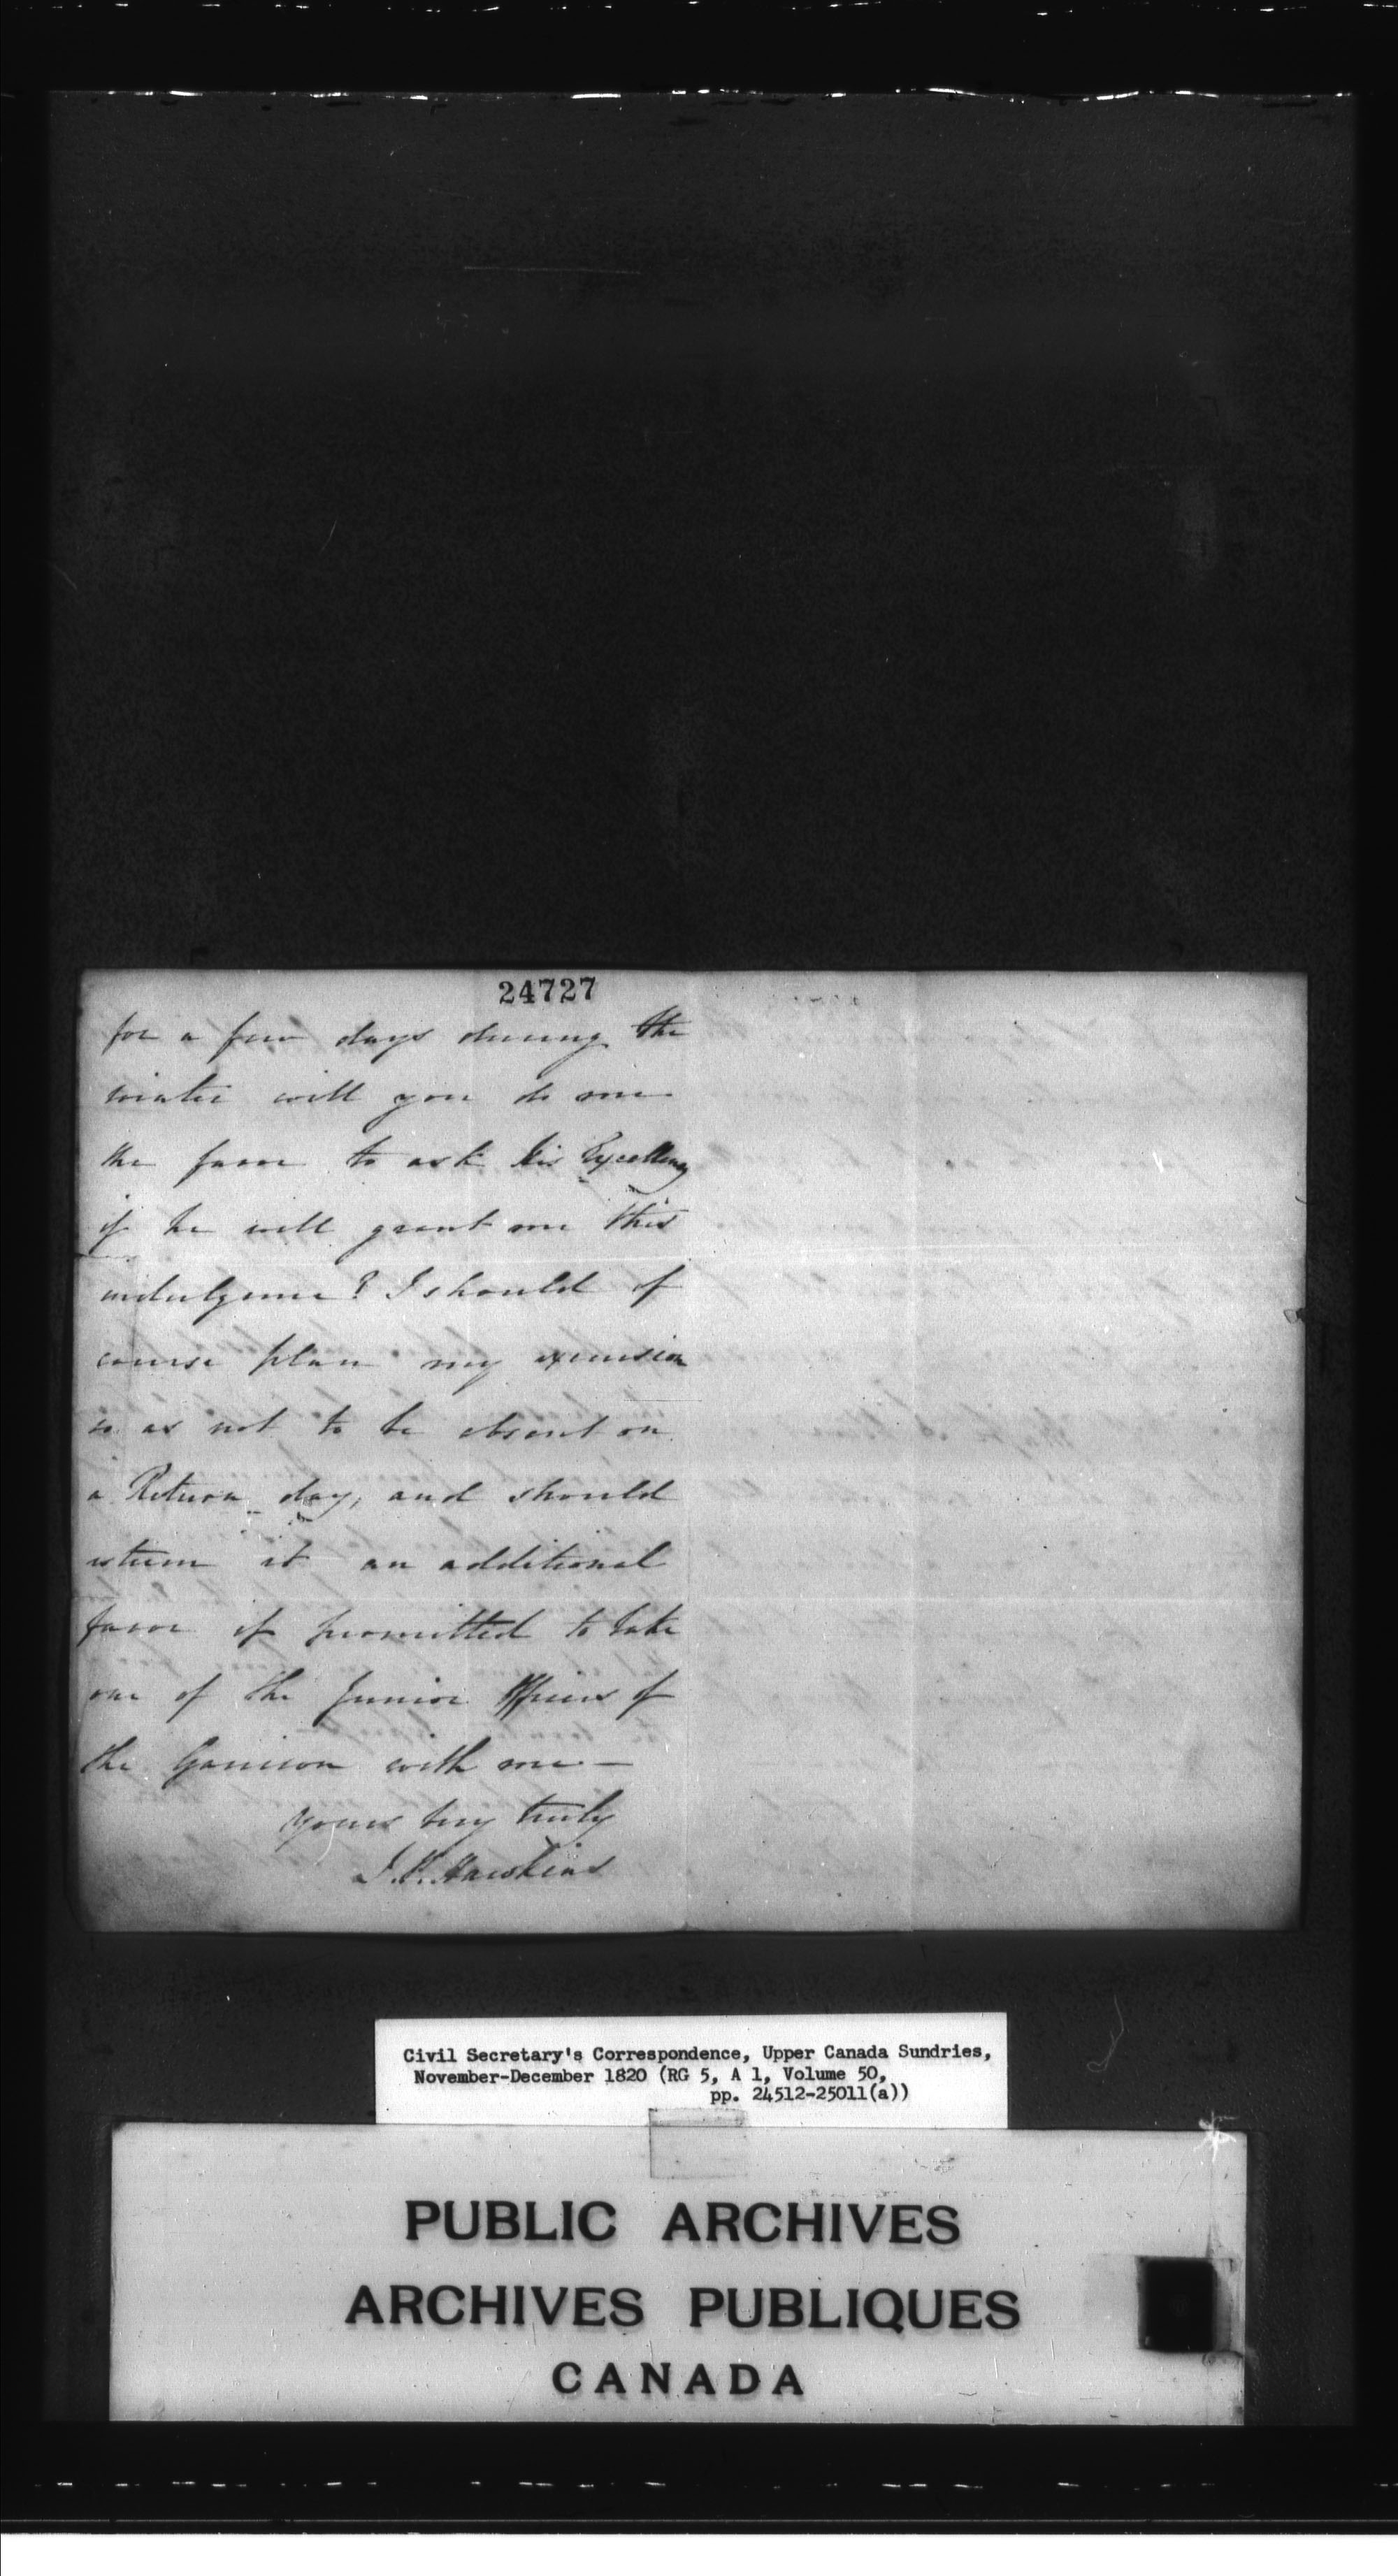 24727
for a few days during the
winter will you do me
the favor to ask his Excellency
if he will grant me this
indulgence? I should of
course plan my excursion
so as not to be absent on
a Return day, and should
esteem it an additional
favor if permitted to take
one of the Junior Officers of
the Garrison with me —
yours very truly
Hawkins
Civil Secretary's Correspondence, Upper Canada Sundries,
November-December 1820 (RG 5, A 1, Volume 50,
pp. 24512-25011(a))
PUBLIC ARCHIVES
ARCHIVES PUBLIQUES
CANADA